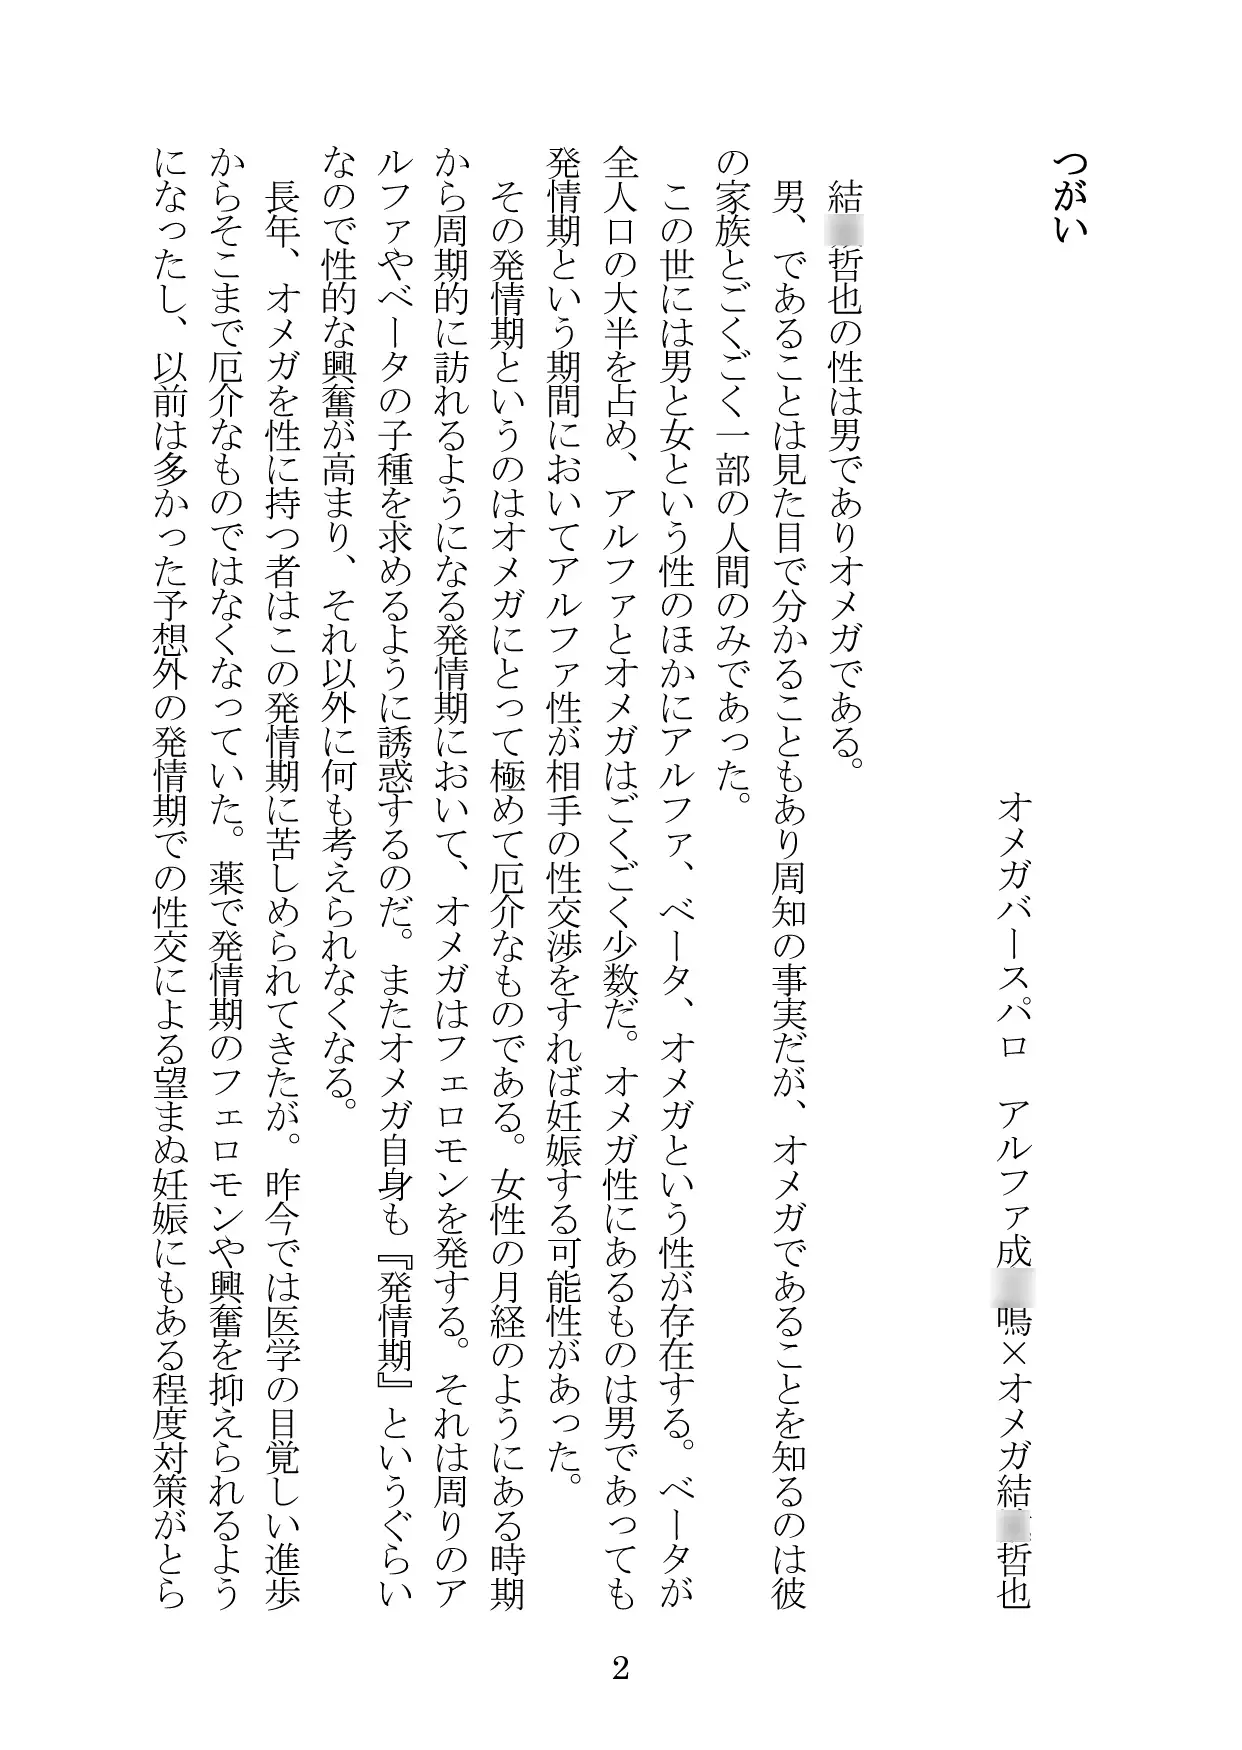 つがい
オメガバースパロ　アルファ成鳴×オメガ結哲也
結哲也の性は男でありオメガである。
男、であることは見た目で分かることもあり周知の事実だが、オメガであることを知るのは彼
の家族とごくごく一部の人間のみであった。
この世には男と女という性のほかにアルファ、ベータ、オメガという性が存在する。ベータが
全人口の大半を占め、アルファとオメガはごくごく少数だ。オメガ性にあるものは男であっても
発情期という期間においてアルファ性が相手の性交渉をすれば妊娠する可能性があった。
その発情期というのはオメガにとって極めて厄介なものである。女性の月経のようにある時期
から周期的に訪れるようになる発情期において、オメガはフェロモンを発する。それは周りのア
ルファやベータの子種を求めるように誘惑するのだ。またオメガ自身も『発情期』というぐらい
なので性的な興奮が高まり、それ以外に何も考えられなくなる。
長年、オメガを性に持つ者はこの発情期に苦しめられてきたが。昨今では医学の目覚しい進歩
からそこまで厄介なものではなくなっていた。薬で発情期のフェロモンや興奮を抑えられるよう
になったし、以前は多かった予想外の発情期での性交による望まぬ妊娠にもある程度対策がとら
2